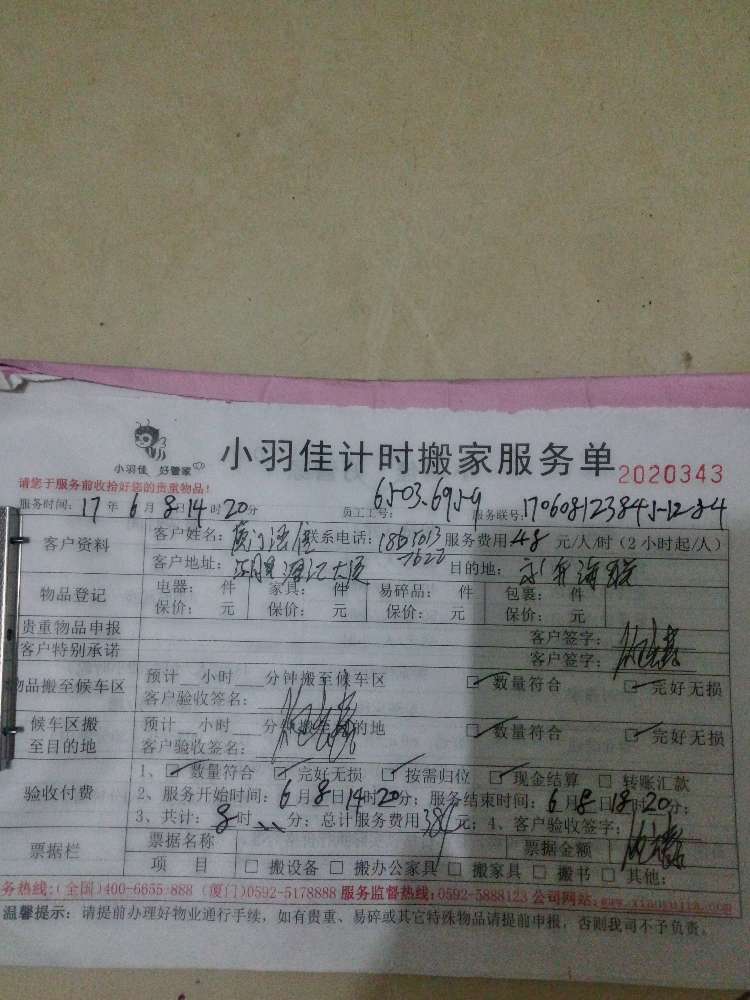 小羽佳 好管家
小羽佳计时搬家服务单 2020343
请您于服务前收拾好您的贵重物品!
服务时间: 17 年 6 月 8 日 14 时 20 分 员工工号: 服务联号:
客户资料 客户姓名: 联系电话: 服务费用 48 元/人/时 (2小时起/人)
客户地址: 目的地:
物品登记 电器: 件 家具: 件 易碎品: 件 包裹: 件
保价: 元 保价: 元 保价: 元 保价: 元
贵重物品申报 客户签字:
客户特别承诺 客户签字:
物品搬至候车区 预计 小时 分钟搬至候车区 数量符合 完好无损
客户验收签名:
候车区搬至目的地 预计 小时 分钟搬至目的地 数量符合 完好无损
客户验收签名:
验收付费 1、 数量符合 完好无损 按需归位 现金结算 转账汇款
2、服务开始时间: 6 月 8 日 14 时 20 分; 服务结束时间: 6 月 8 日 18 时 20 分;
3、共计: 8 时 分; 总计服务费用 384 元; 4、客户验收签字:
票据栏 票据名称 票据金额
项 目 搬设备 搬办公家具 搬家具 搬书 其他:
务热线:(全国)400-6655-888 (厦门)0592-5178888 服务监督热线:0592-5888123 公司网站:
温馨提示: 请提前办理好物业通行手续, 如有贵重、易碎或其它特殊物品请提前申报, 否则我司不予负责。